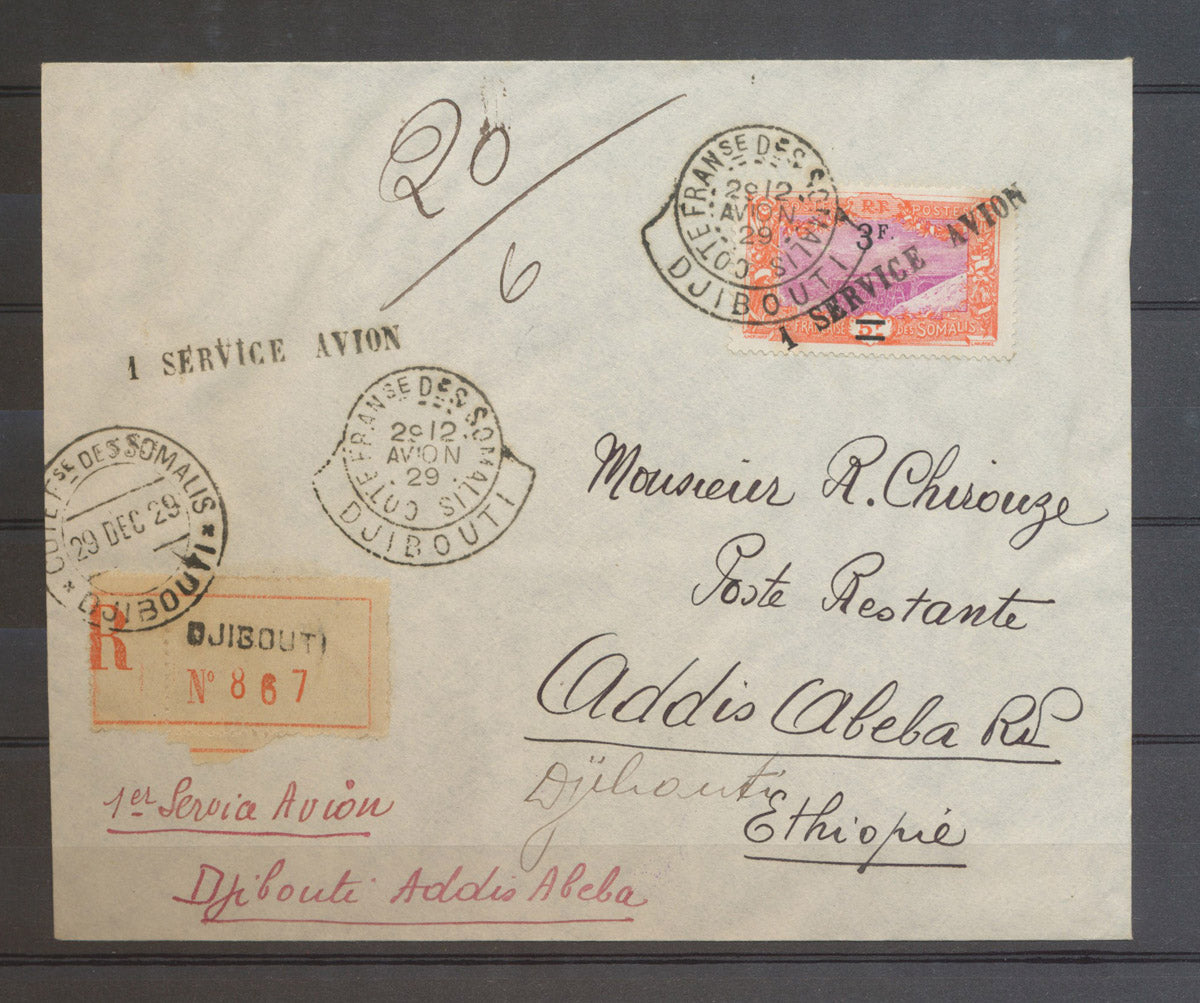 20
6
COTE FRANSE DES SOMALIS
29 12
AVION
29
DJIBOUTI
POSTES RF POSTES
3F.
1 SERVICE AVION
FRANÇAISE 5F DES SOMALIS
1 SERVICE AVION
COTE FRANSE DES SOMALIS
29 12
AVION
29
DJIBOUTI
COTE FSE DES SOMALIS
29 DEC 29
* DJIBOUTI *
R
DJIBOUTI
N° 867
Monsieur R. Chirouze
Poste Restante
Addis Abeba
Djibouti
Ethiopie
1er Service Avion
Djibouti Addis Abeba